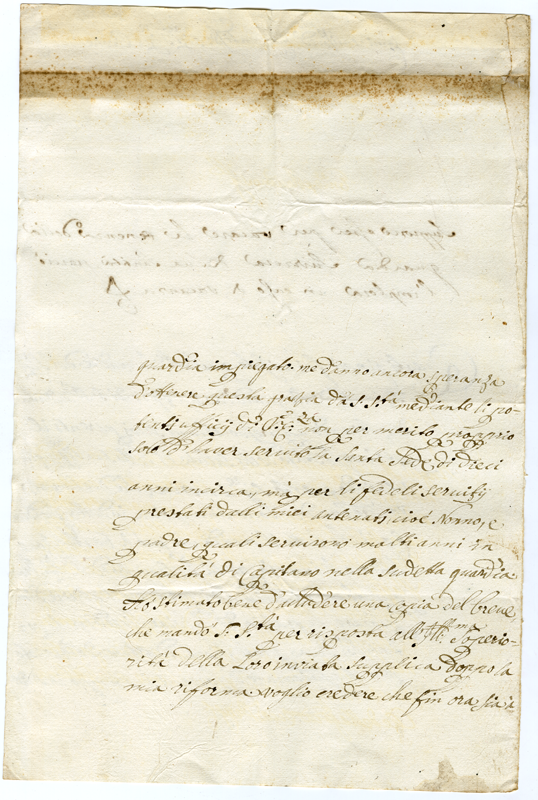 guardia impiegato me danno ancora speranza
d'ottenere questa grazia da S. S.tà mediante li po-
tenti ufficij di V. Ecc.za non per merito proprio
solo d'haver servito la Santa Sede di dieci
anni incirca, mà per li fideli servitij
prestati dalli miei antenati, cioè Nonno, e
padre, quali servirono molti anni in
qualità di Capitano nella sudetta guardia.
Hò stimato bene d'acludere una copia del breve,
che mandò S. S.tà per risposta all' Ill.ma Superio-
rità della Loro inviata supplica doppo la
mia riforma, voglio credere che fin ora sia